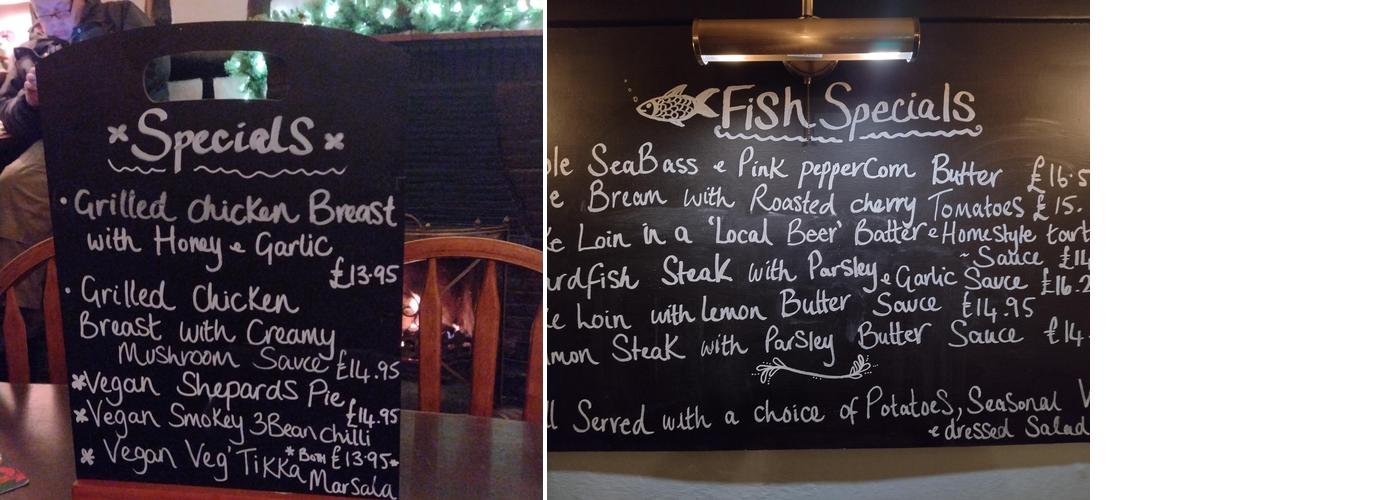 Specials
Grilled chicken Breast
with Honey & Garlic
£13.95
Grilled Chicken
Breast with Creamy
Mushroom Sauce £14.95
Vegan Shepards Pie
£14.95
Vegan Smokey 3Bean chilli
*Both £13.95*
Vegan Veg' Tikka
Marsala
Fish Specials
SeaBass & Pink pepperCorn Butter £16.5
Bream with Roasted cherry Tomatoes £15.
Loin in a 'Local Beer' Batter & HomeStyle tart
~Sauce £14
ardfish Steak with Parsley & Garlic Sauce £16.2
Loin with lemon Butter Sauce £14.95
mon Steak with Parsley Butter Sauce £14.
Served with a choice of Potatoes, Seasonal V
& dressed Salad